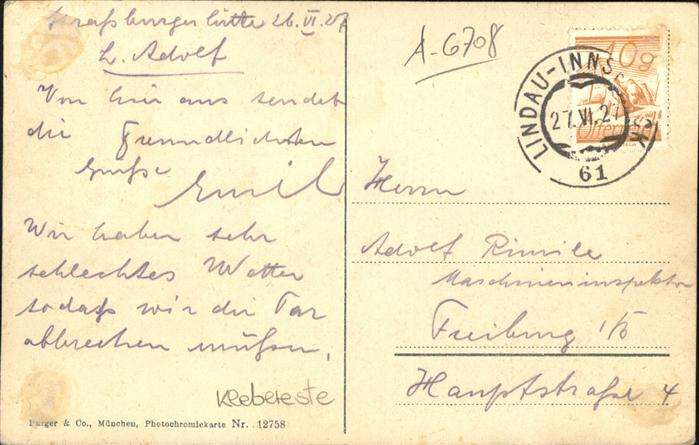 Straßburger Hütte 26.VI.27
L. Adolf
Von hier aus sendet
die Freundlichsten
Grüße Emil
Wir haben sehr
schlechtes Wetter
sodaß wir die Tar
abbrechen müßen.
Klebereste
Purger & Co., München, Photochromiekarte Nr. 12758
A-6708
10g
Österreich
LINDAU-INNS
27.VI.27
61
Herrn
Adolf
Maschineninspektor
Freiburg i/B
Hauptstraße 4